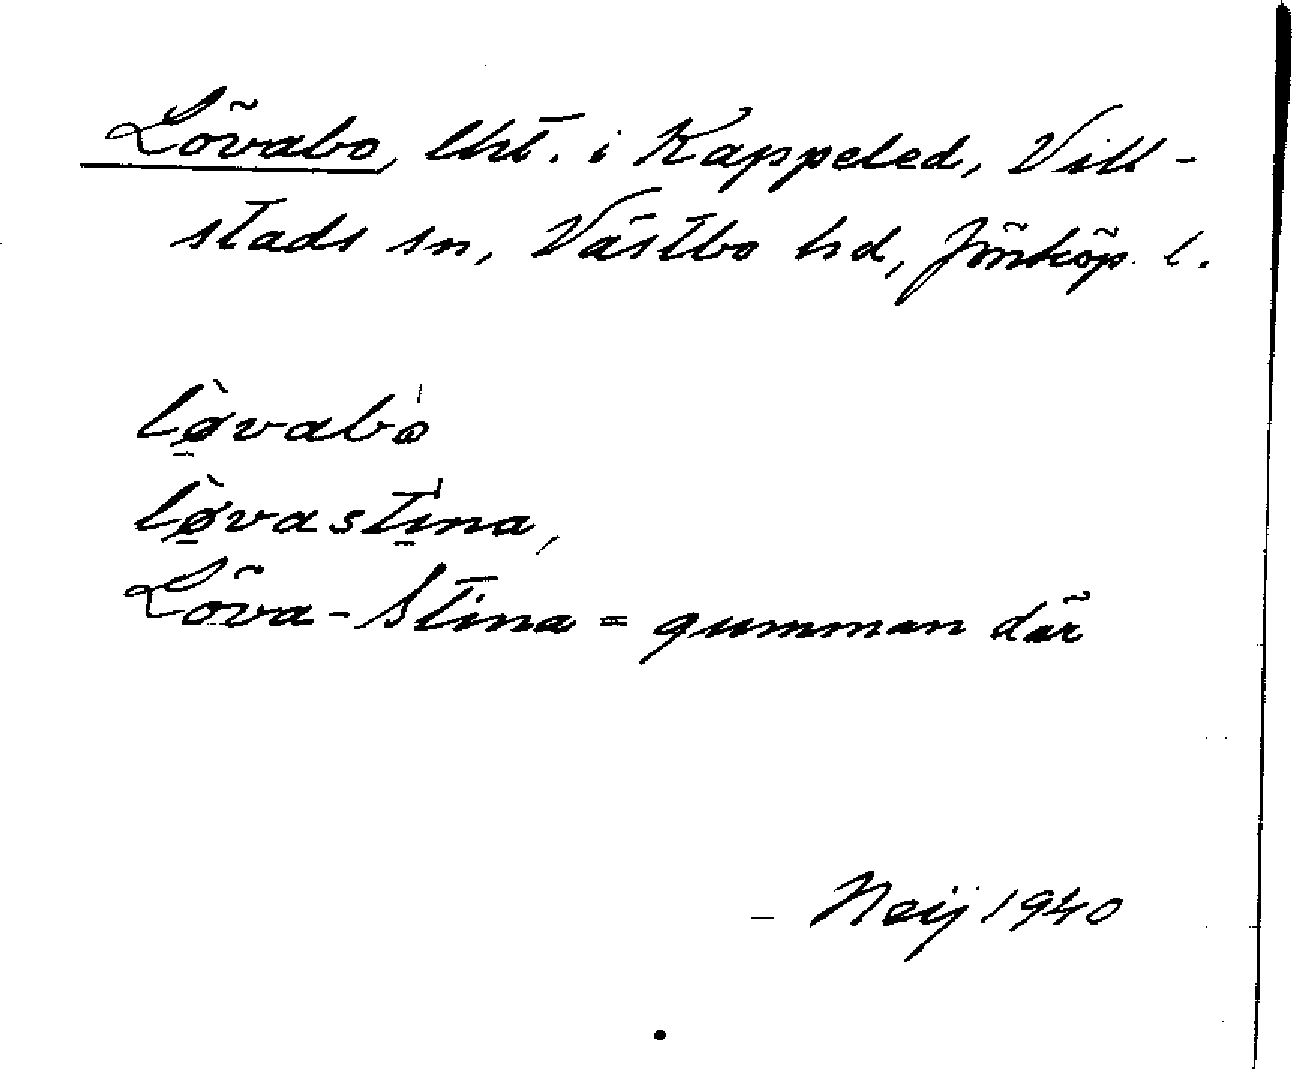 Lövabo, lht. i Kappeled, Vill-
stads sn, Västbo hd, Jönköp. l.
lø̱̀vabo̍
lø̱̀vasti̱̍na,
Löva-Stina = gumman där
– Neij 1940